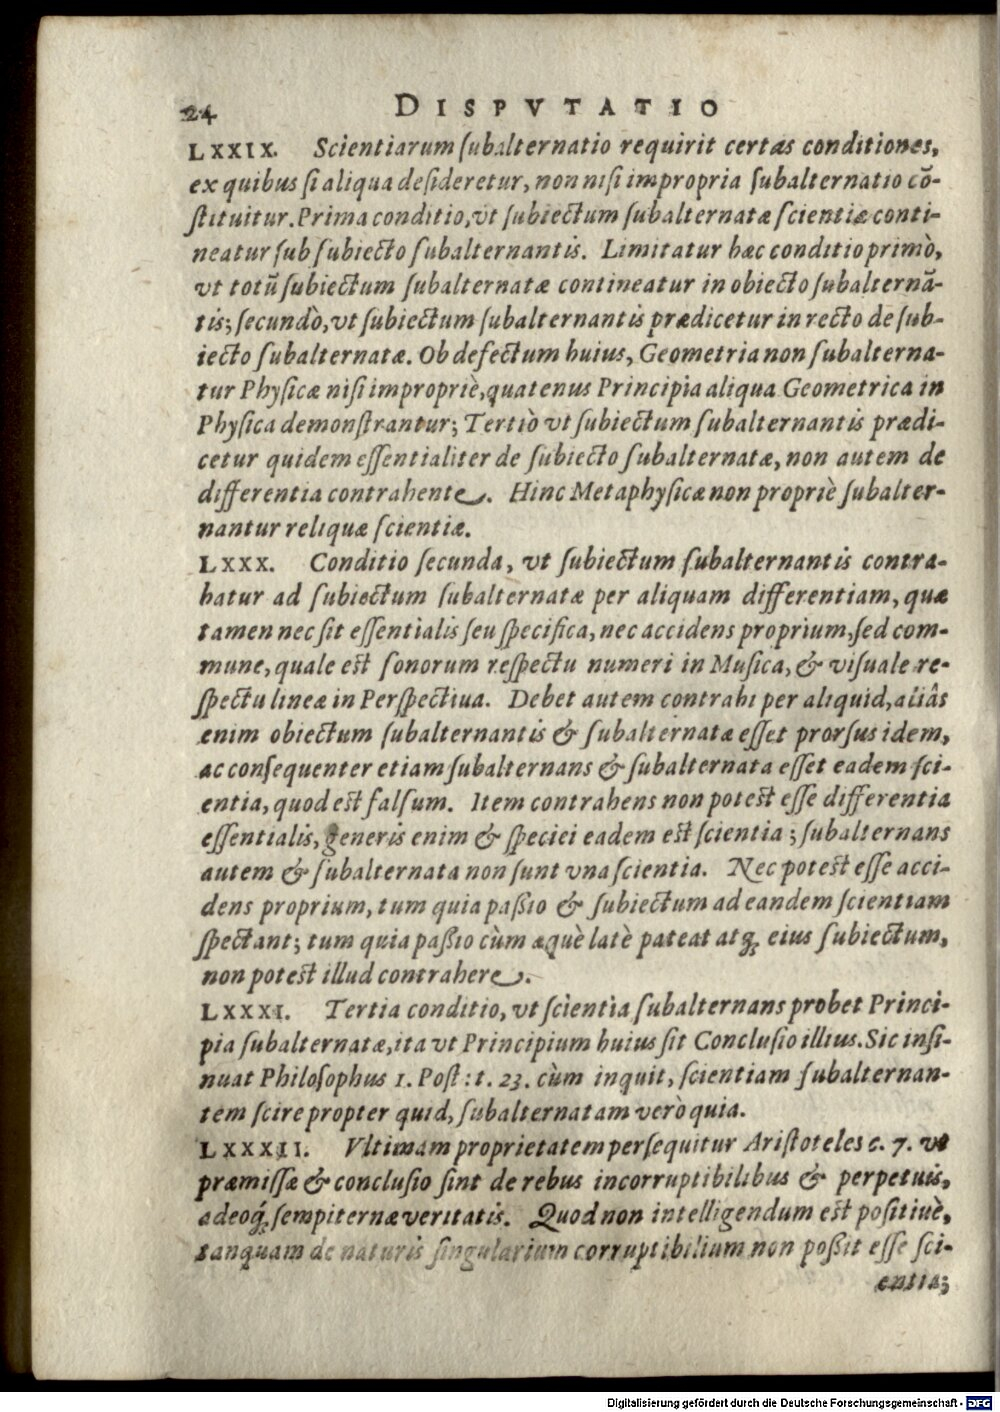 24 DISPVTATIO
LXXIX. Scientiarum ſubalternatio requirit certas conditiones,
ex quibus ſi aliqua deſideretur, non niſi impropria ſubalternatio cō-
ſtituitur. Prima conditio, vt ſubiectum ſubalternatæ ſcientiæ conti-
neatur ſub ſubiecto ſubalternantis. Limitatur hæc conditio primò,
vt totū ſubiectum ſubalternatæ contineatur in obiecto ſubalternā-
tis; ſecundò, vt ſubiectum ſubalternantis prædicetur in recto de ſub-
iecto ſubalternatæ. Ob defectum huius, Geometria non ſubalterna-
tur Phyſicæ niſi impropriè, quatenus Principia aliqua Geometrica in
Phyſica demonſtrantur; Tertiò vt ſubiectum ſubalternantis prædi-
cetur quidem eſſentialiter de ſubiecto ſubalternatæ, non autem de
differentia contrahente. Hinc Metaphyſicæ non propriè ſubalter-
nantur reliquæ ſcientiæ.
LXXX. Conditio ſecunda, vt ſubiectum ſubalternantis contra-
hatur ad ſubiectum ſubalternatæ per aliquam differentiam, quæ
tamen nec ſit eſſentialis ſeu ſpecifica, nec accidens proprium, ſed com-
mune, quale est ſonorum reſpectu numeri in Muſica, & viſuale re-
ſpectu lineæ in Perſpectiua. Debet autem contrahi per aliquid, aliâs
enim obiectum ſubalternantis & ſubalternatæ eſſet prorſus idem,
ac conſequenter etiam ſubalternans & ſubalternata eſſet eadem ſci-
entia, quod est falſum. Item contrahens non potest eſſe differentia
eſſentialis, generis enim & ſpeciei eadem est ſcientia; ſubalternans
autem & ſubalternata non ſunt vna ſcientia. Nec potest eſſe acci-
dens proprium, tum quia paßio & ſubiectum ad eandem ſcientiam
ſpectant; tum quia paßio cùm æquè latè pateat atq; eius ſubiectum,
non potest illud contrahere.
LXXXI. Tertia conditio, vt ſcientia ſubalternans probet Princi-
pia ſubalternatæ, ita vt Principium huius ſit Concluſio illius. Sic inſi-
nuat Philoſophus 1. Poſt: t. 23. cùm inquit, ſcientiam ſubalternan-
tem ſcire propter quid, ſubalternatam verò quia.
LXXXII. Vltimam proprietatem perſequitur Ariſtoteles c. 7. vt
præmiſſæ & concluſio ſint de rebus incorruptibilibus & perpetuis,
adeoq́; ſempiternæ veritatis. Quod non intelligendum est poſitiuè,
tanquam de naturis ſingularium corruptibilium non poßit eſſe ſci-
entia;
Digitalisierung gefördert durch die Deutsche Forschungsgemeinschaft - DFG